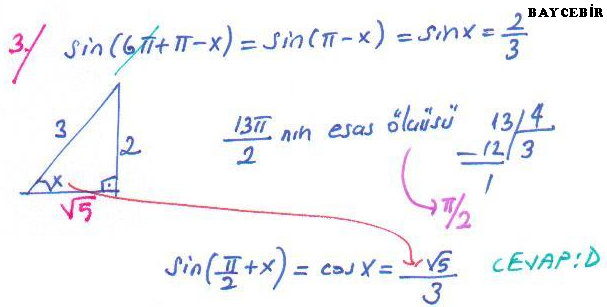 BAYCEBİR
3. sin(6π+π-x) = sin(π-x) = sinx = 2/3
3 2 x √5
13π/2 nin esas ölçüsü 13 4
-12 3
1
π/2
sin(π/2+x) = cosx = √5/3 CEVAP:D